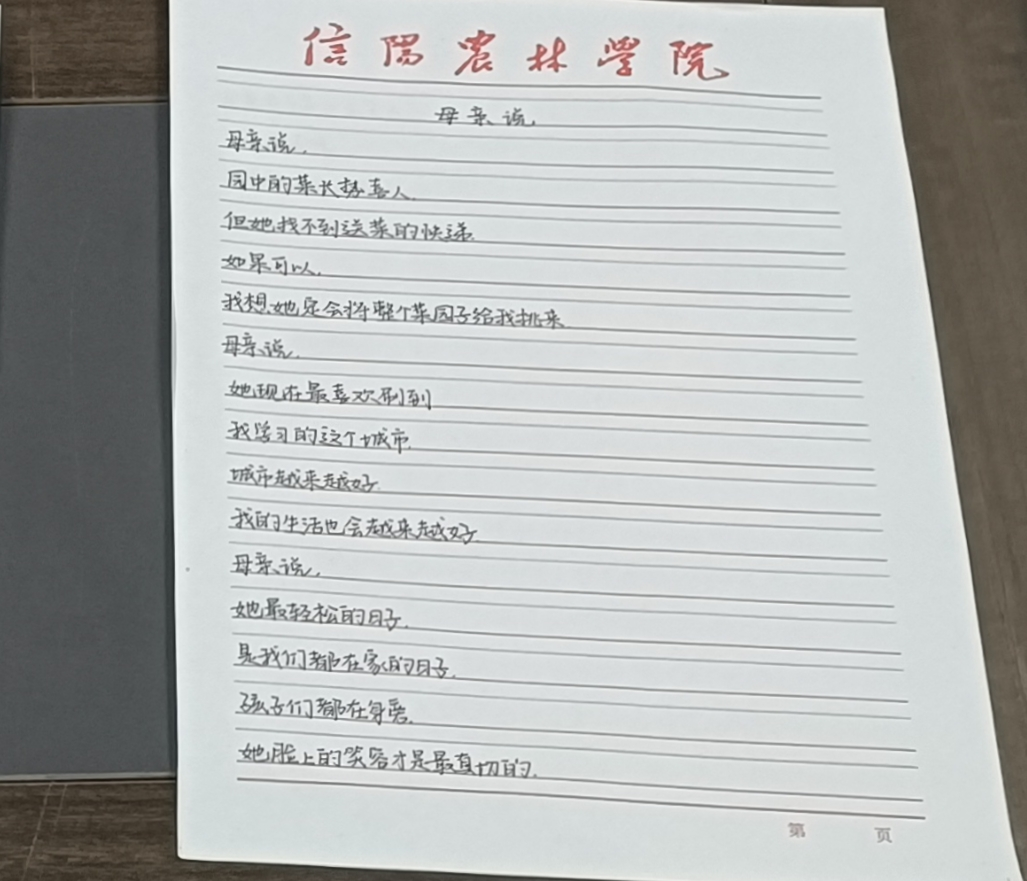 信陽农林學院
母亲说
母亲说,
园中的菜长势喜人
但她找不到送菜的快递
如果可以,
我想她定会将整个菜园子给我挑来
母亲说,
她现在最喜欢刷到
我学习的这个城市
城市越来越好
我的生活也会越来越好
母亲说,
她最轻松的日子,
是我们都在家的日子,
孩子们都在身旁,
她脸上的笑容才是最真切的,
第 页